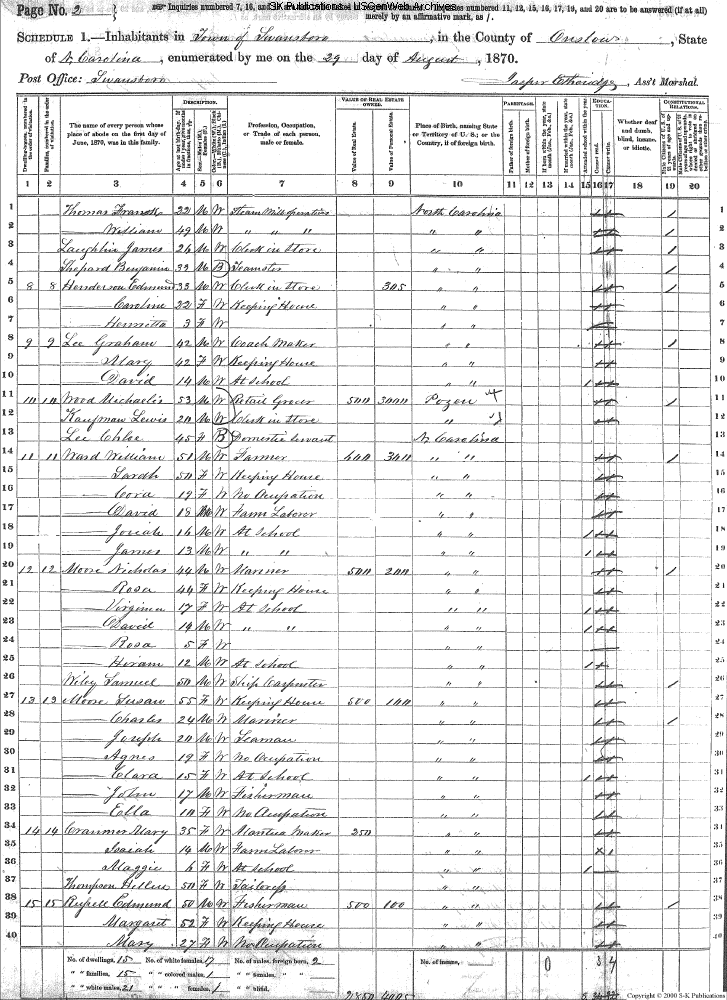 Page No. 2
Inquiries numbered 7, 16, and
S-K Publications USGenWeb Archives
numbered 11, 12, 15, 16, 17, 19, and 20 are to be answered (if at all)
merely by an affirmative mark, as /.
SCHEDULE 1.—Inhabitants in Town of Swansboro, in the County of Onslow, State
of N. Carolina, enumerated by me on the 29 day of August, 1870.
Post Office: Swansboro
Jasper Etheridge, Ass't Marshal.
DESCRIPTION. VALUE OF REAL ESTATE OWNED. PARENTAGE. EDUCATION. CONSTITUTIONAL RELATIONS.
The name of every person whose place of abode on the first day of June, 1870, was in this family.
Profession, Occupation, or Trade of each person, male or female.
Value of Real Estate.
Value of Personal Estate.
Place of Birth, naming State or Territory of U. S.; or the Country, if of foreign birth.
Father of foreign birth.
Mother of foreign birth.
Attended school within the year.
Cannot read.
Cannot write.
Whether deaf and dumb, blind, insane, or idiotic.
1 2 3 4 5 6 7 8 9 10 11 12 13 14 15 16 17 18 19 20
1 Thomas 22 M W Steam Mill North Carolina / 1
2 William 49 M W " " " " " / 2
3 Laughlin James 26 M W Clerk in Store " " / 3
4 Shepard Benjamin 39 M B Teamster " " / 4
5 8 8 Henderson Edmund 33 M W Clerk in Store 305 " " / 5
6 Caroline 22 F W Keeping House " " 6
7 Henrietta 3 F W " " 7
8 9 9 Lee Graham 42 M W Coach Maker " " / 8
9 Mary 42 F W Keeping House " " 9
10 David 14 M W At School " " 1 10
11 10 10 Wood Michaelis 53 M W Retail Grocer 500 3000 Pozen / 11
12 Kaufman Lewis 20 M W Clerk in Store " 12
13 Lee Chloe 45 F B Domestic Servant N. Carolina 13
14 11 11 Ward William 51 M W Farmer 400 340 " " / 14
15 Sarah 50 F W Keeping House " " 15
16 Cora 19 F W No Ocupation " " 16
17 David 18 M W Farm Laborer " " 17
18 Josiah 16 M W At School " " 1 18
19 James 13 M W " " " " 1 19
20 12 12 Moore Nicholas 44 M W Mariner 500 200 " " / 20
21 Rosa 44 F W Keeping House " " 21
22 Virginia 17 F W At School " " 1 22
23 David 14 M W " " " " 1 23
24 Rosa 5 F W " " 24
25 Hiram 12 M W At School " " 1 25
26 Wiley Samuel 50 M W Ship Carpenter " " / 26
27 13 13 Moore Susan 55 F W Keeping House 500 100 " " 27
28 Charles 24 M W Mariner " " / 28
29 Joseph 20 M W Seaman " " 29
30 Agnes 19 F W No Ocupation " " 30
31 Clara 15 F W At School " " 1 31
32 John 17 M W Fisherman " " 32
33 Ella 10 F W No Ocupation " " 33
34 14 14 Cranmer Mary 35 F W Mantua Maker 250 " " 34
35 Isaiah 14 M W Farm Laborer " " X 1 35
36 Maggie 6 F W At School " " 1 36
37 Thompson 50 F W Tailoress " " 37
38 15 15 Russell Edmund 50 M W Fisherman 500 100 " " / 38
39 Margaret 52 F W Keeping House " " 39
40 Mary 27 F W No Ocupation " " 40
No. of dwellings, 15 No. of white females, 17 No. of males, foreign born, 2 No. of insane, 0 3 4
" " families, 15 " " colored males, 1 " " females, "
" " white males, 21 " " females, 1 " " blind,
Copyright © 2000 S-K Publications